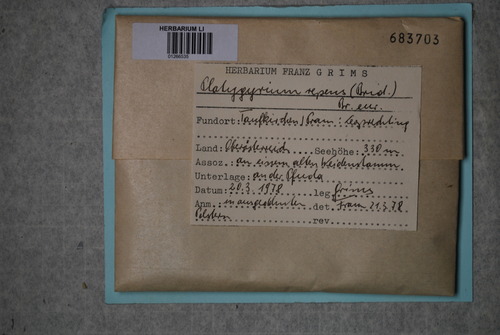 HERBARIUM LI
683703
HERBARIUM FRANZ GRIMS
Platygyrium repens (Brid.)
Br. eur.
Fundort: Taufkirchen/Pram: Legrading
Land: Oberösterreich Seehöhe: 330 m
Assoz. an einem alten Weidenstamm
Unterlage: an der Pfuda
Datum: 20.3.1978 leg Grims
Anm. in ausgedehnten det Grims 21.3.78
Polstern rev